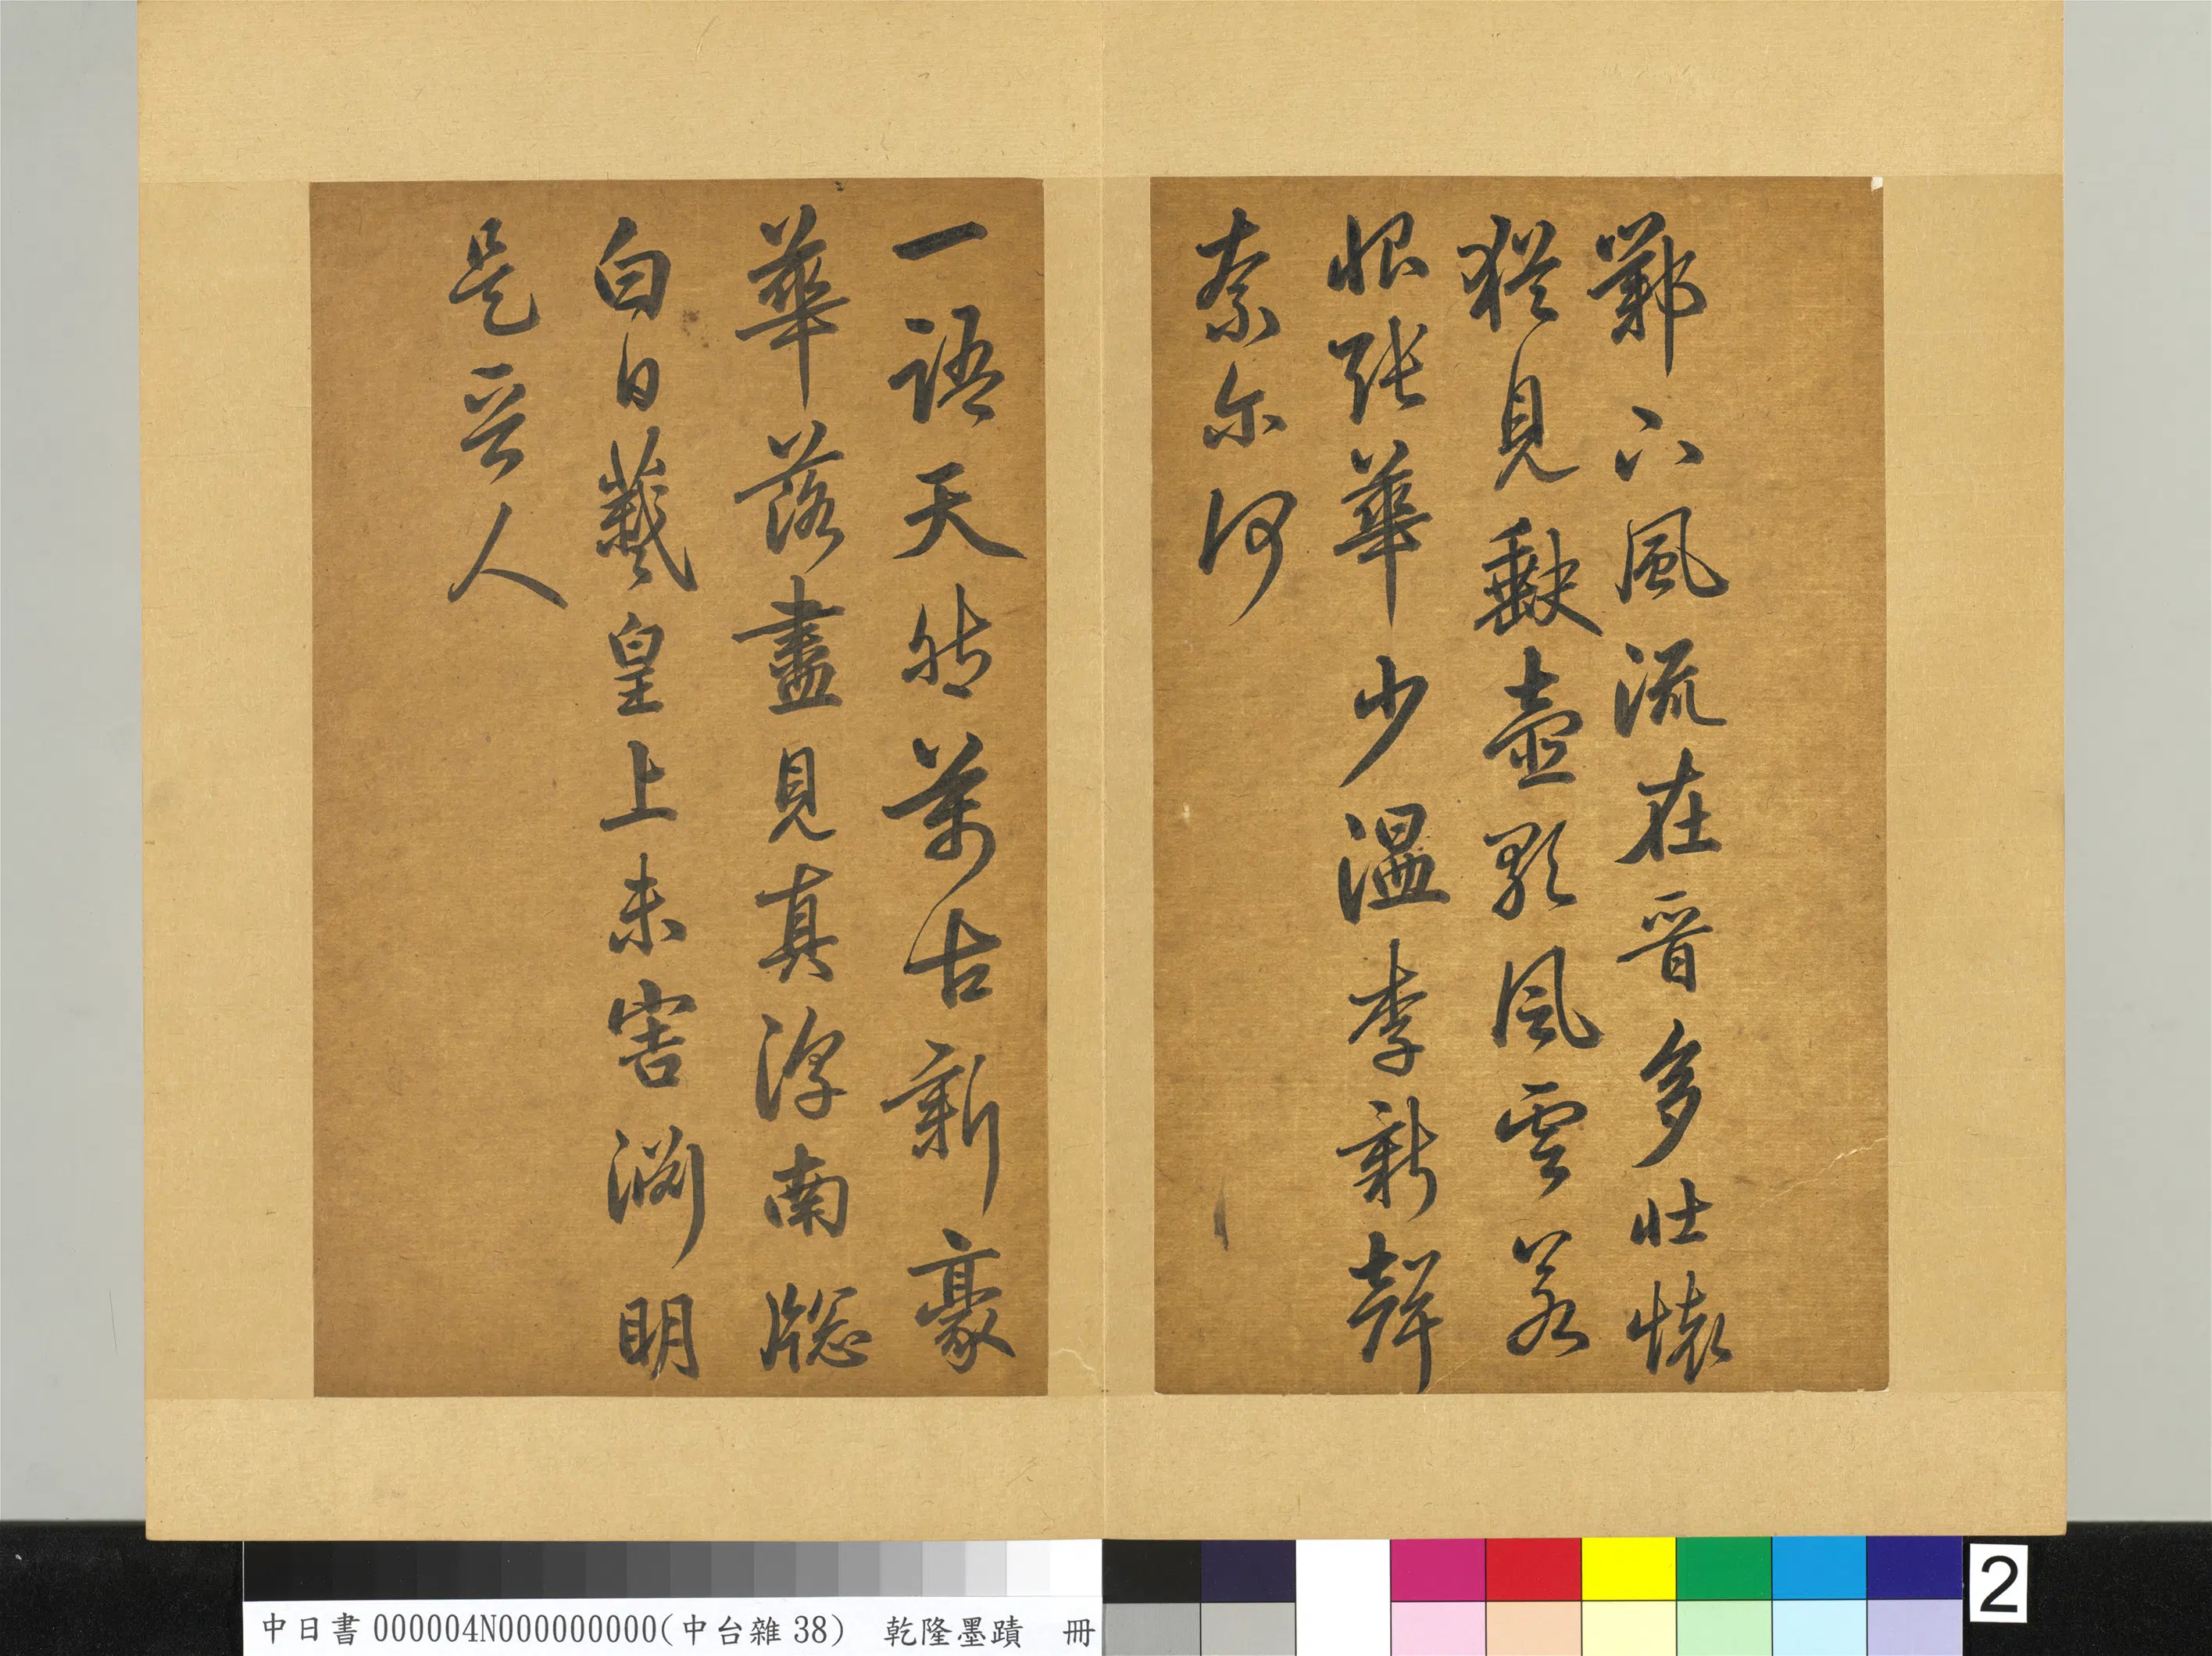 鄴下風流在晉多壯懷
猶見缺壺歌風雲若
恨張華少溫李新聲
奈尔何
一語天然萬古新豪
華落盡見真淳南牕
白日羲皇上未害淵明
是晉人
中日書000004N000000000(中台雜38) 乾隆墨蹟 冊
2